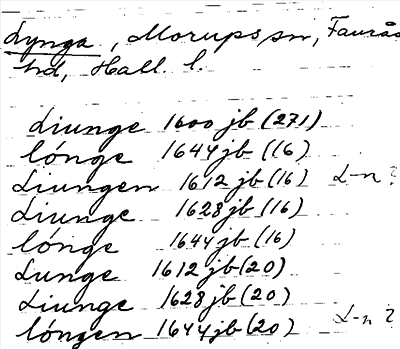 Lynga, Morups sn, Faurås
hd, Hall. l.
Liunge 1600 jb (271)
lónge 1644 jb (16)
Liungen 1612 jb (16) L-n?
Liunge 1628 jb (16)
lónge 1644 jb (16)
Lunge 1612 jb (20)
Liunge 1628 jb (20)
lóngen 1644 jb (20) L-n?